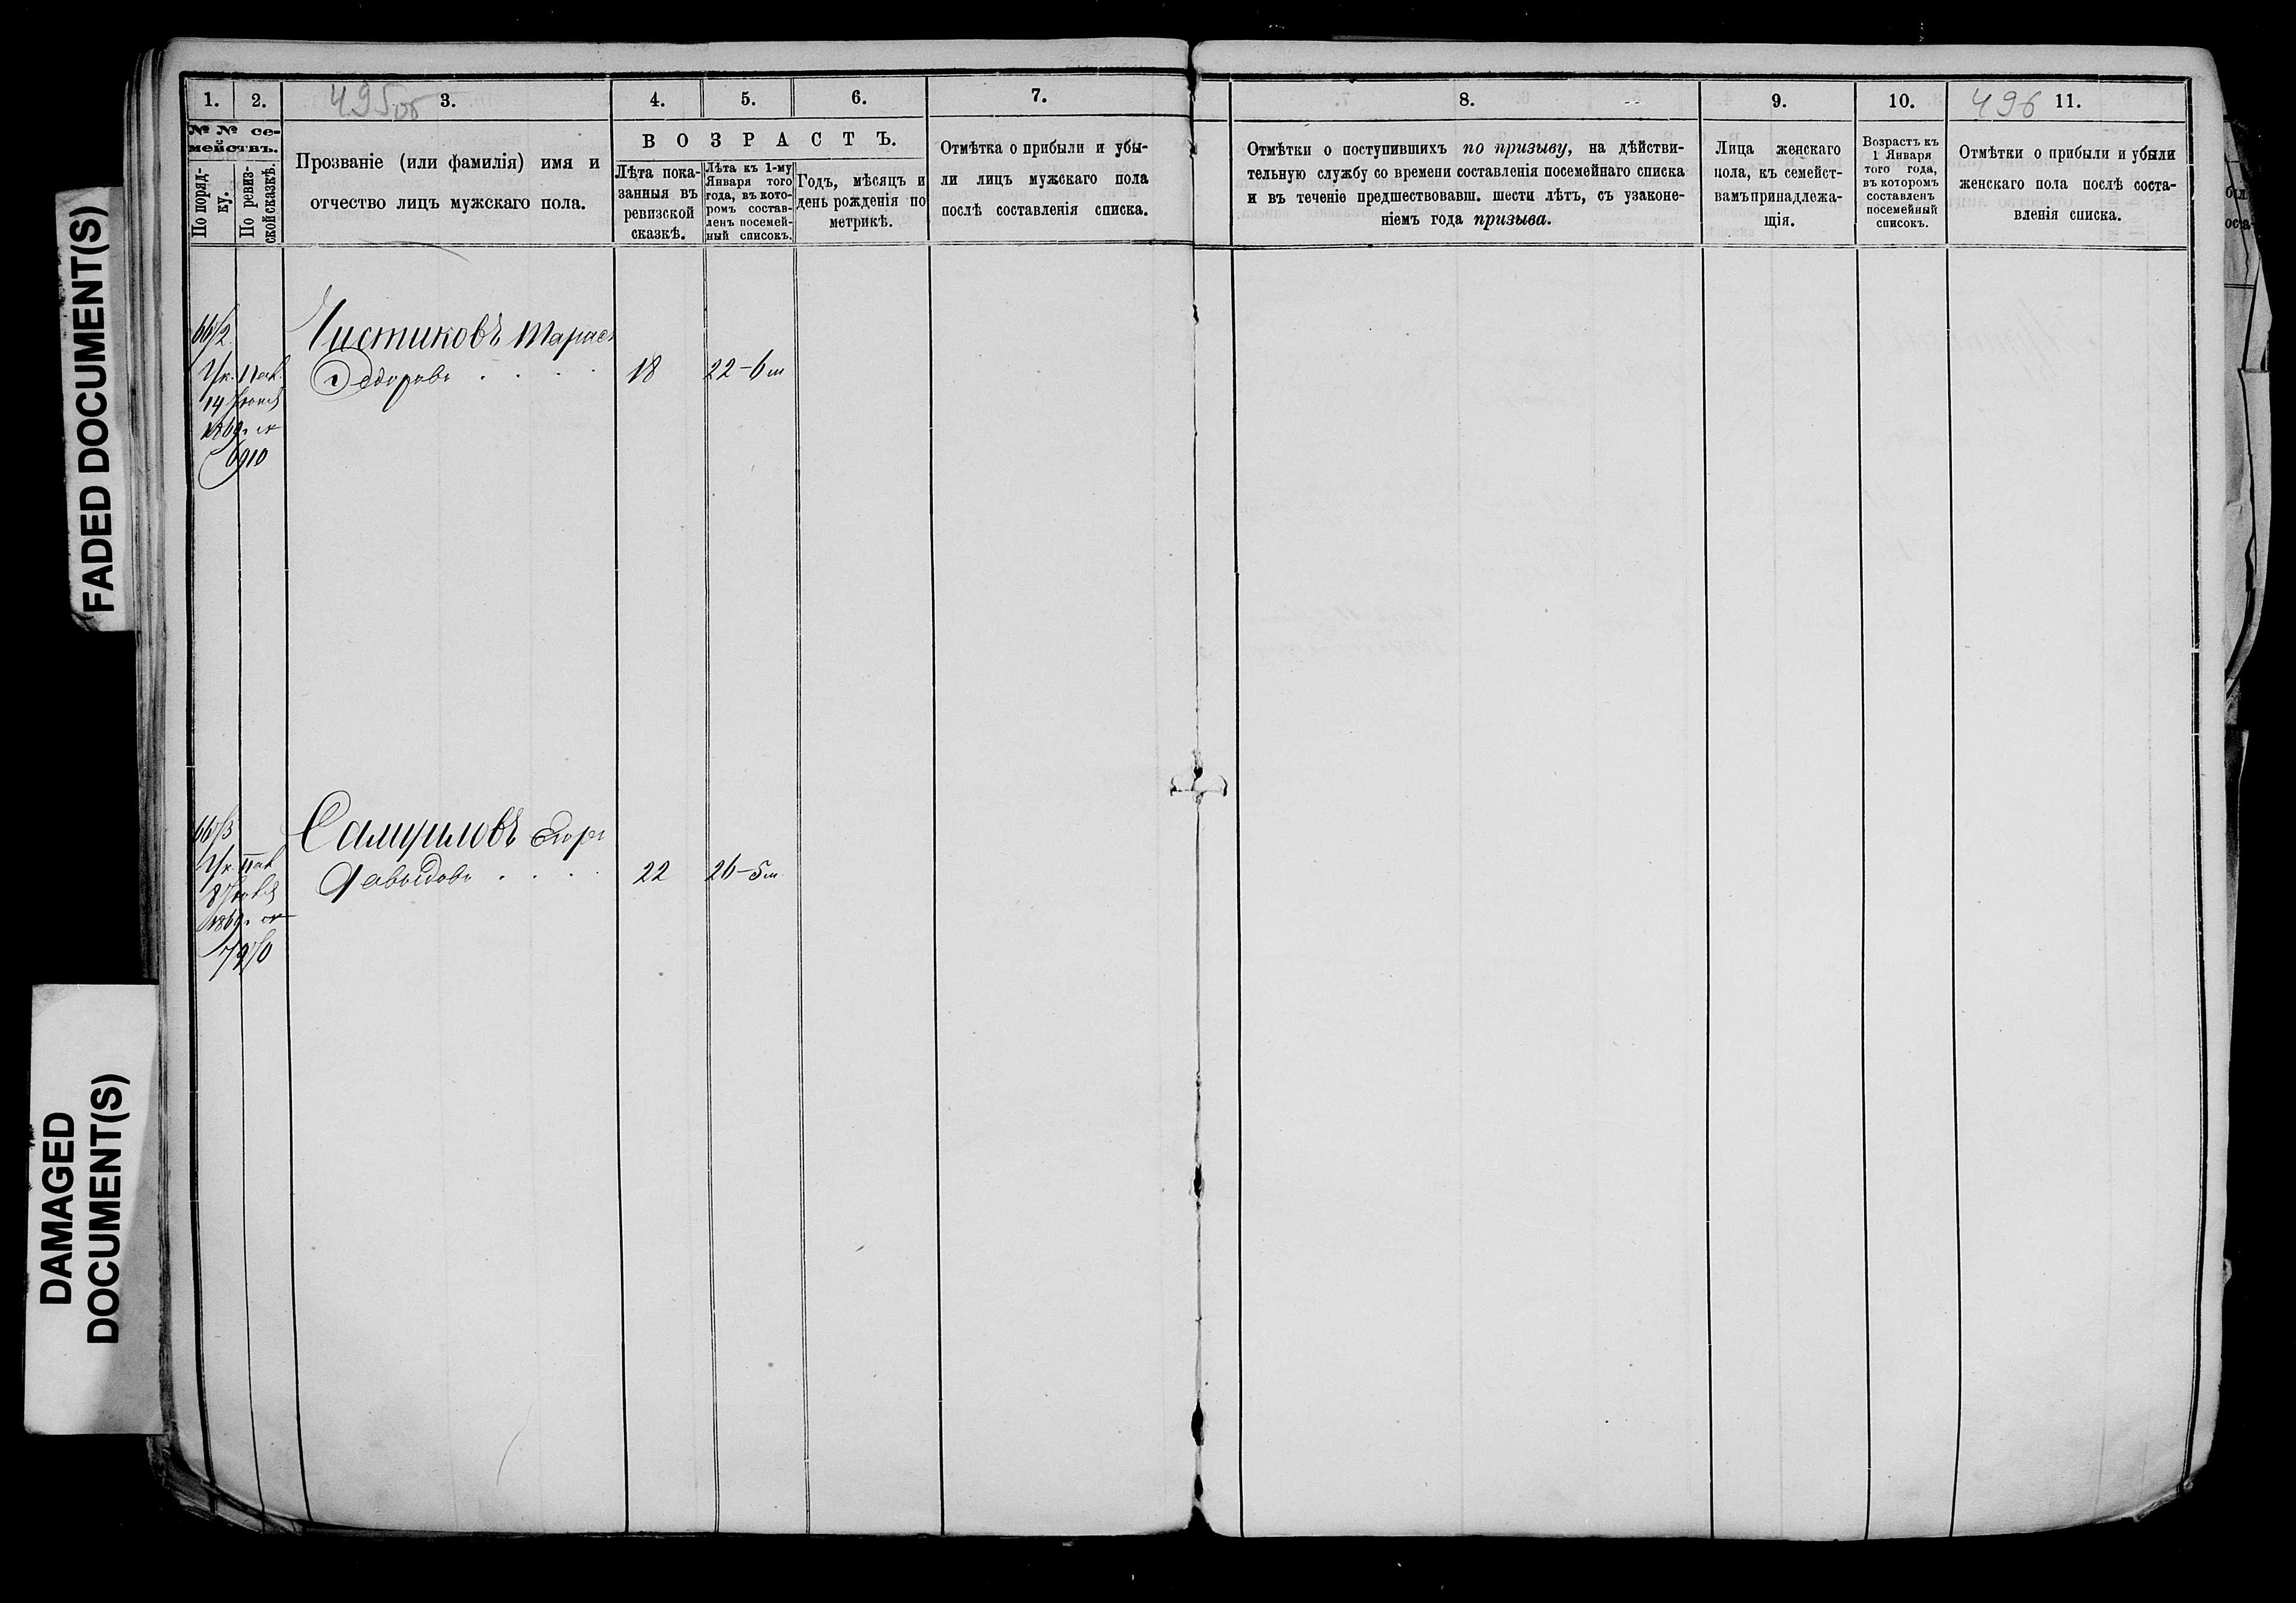 FADED DOCUMENT(S)
DAMAGED
DOCUMENT(S)
1. 2. 3. 4. 5. 6. 7.
495 об
№ № се-
мействъ.
По поряд-
ку.
По ревиз-
ской сказкѣ.
Прозваніе (или фамилія) имя и
отчество лицъ мужскаго пола.
ВОЗРАСТЪ.
Лѣта пока-
занныя въ
ревизской
сказкѣ.
Лѣта къ 1-му
Января того
года, въ кото-
ромъ состав-
ленъ посемей-
ный списокъ.
Годъ, мѣсяцъ и
день рожденія по
метрикѣ.
Отмѣтка о прибыли и убы-
ли лицъ мужскаго пола
послѣ составленія списка.
66/2 Чистиковъ Тарасъ
Ук. Пал. Ѳедоровъ . . . . 18 22-6 м
14
1869 г. №
6910
66/3 Самуиловъ
Ук. Пал. Давыдовъ . . . . 22 26-5 м
8
1869 г. №
8. 9. 10. 11.
496
Отмѣтки о поступившихъ по призыву, на дѣйстви-
тельную службу со времени составленія посемейнаго списка
и въ теченіе предшествовавш. шести лѣтъ, съ узаконе-
ніемъ года призыва.
Лица женскаго
пола, къ семейст-
вамъ принадлежа-
щія.
Возрастъ къ
1 Января
того года,
въ которомъ
составленъ
посемейный
списокъ.
Отмѣтки о прибыли и убыли
женскаго пола послѣ соста-
вленія списка.